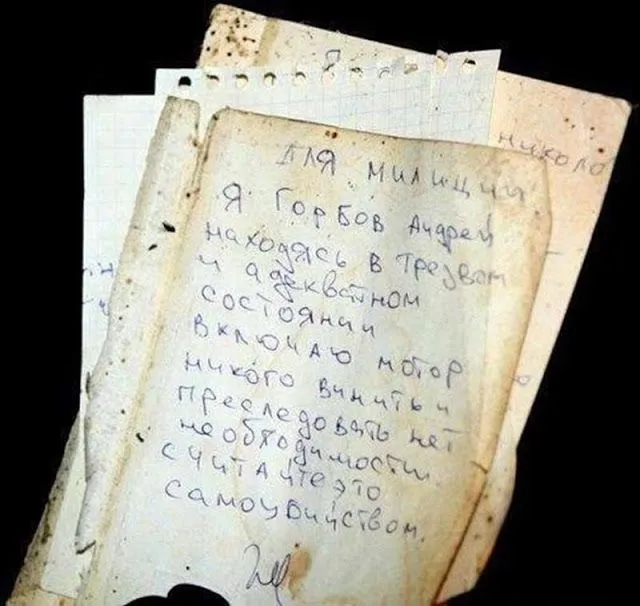 для милиции.
Я Горбов Андрей
находясь в трезвом
и адекватном
состоянии
включаю мотор
никого винить и
преследовать нет
необходимости.
считайте это
самоубийством.
николо